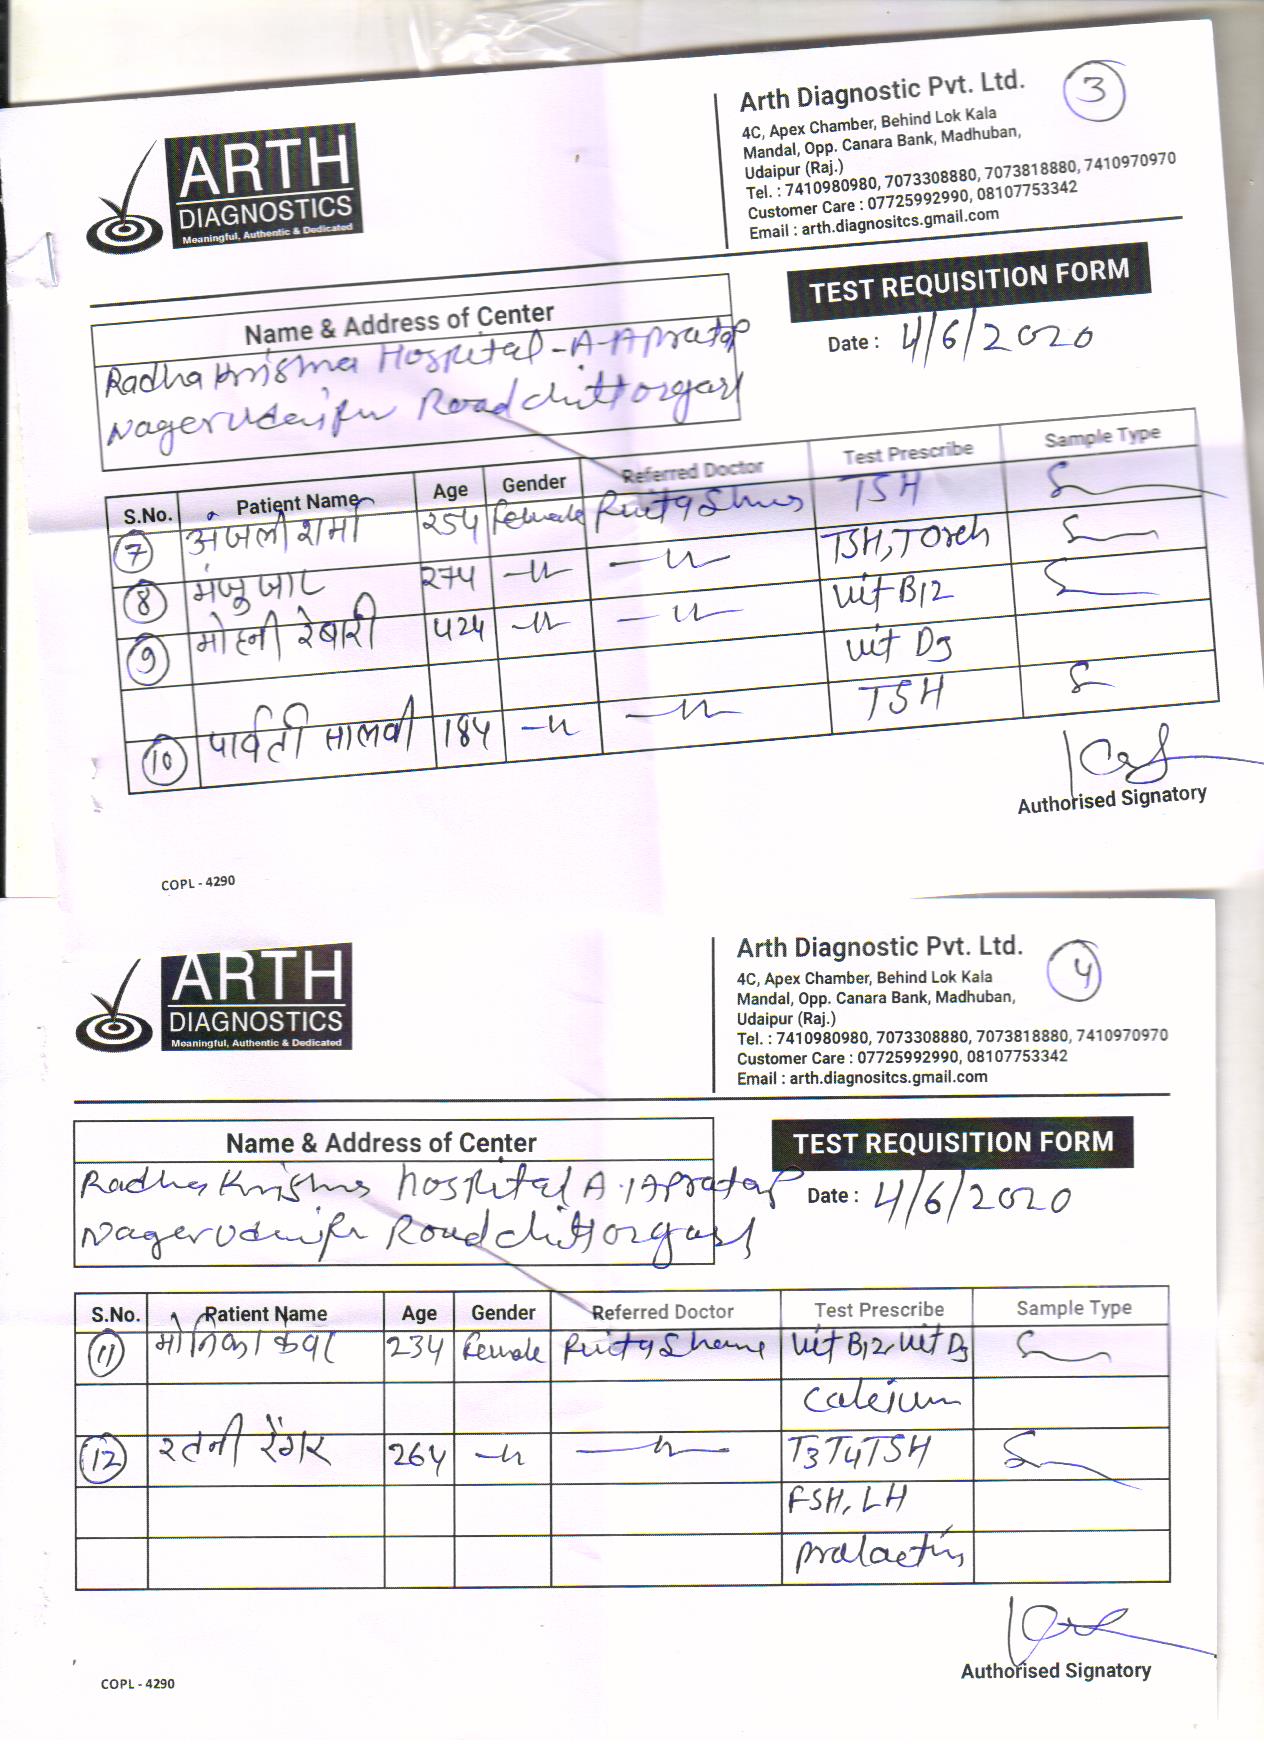 ARTH
DIAGNOSTICS
Meaningful, Authentic & Dedicated
Arth Diagnostic Pvt. Ltd.
3
4C, Apex Chamber, Behind Lok Kala
Mandal, Opp. Canara Bank, Madhuban,
Udaipur (Raj.)
Tel. : 7410980980, 7073308880, 7073818880, 7410970970
Customer Care : 07725992990, 08107753342
Email : arth.diagnositcs.gmail.com
TEST REQUISITION FORM
Date : 4/6/2020
Name & Address of Center
Radha Krisma Hospital -A-A pratap
Nager Udaipur Road chittorgarh
S.No. Patient Name Age Gender Referred Doctor Test Prescribe Sample Type
7 अंजली शर्मा 25Y Female TSH S
8 मंजु जाट 27Y -"- -"- TSH, Torch S
9 मोहनी रेबारी 42Y -"- -"- Vit B12 S
Vit D3
10 पार्वती सालवी 18Y -"- -"- TSH S
Authorised Signatory
COPL - 4290
ARTH
DIAGNOSTICS
Meaningful, Authentic & Dedicated
Arth Diagnostic Pvt. Ltd.
4
4C, Apex Chamber, Behind Lok Kala
Mandal, Opp. Canara Bank, Madhuban,
Udaipur (Raj.)
Tel. : 7410980980, 7073308880, 7073818880, 7410970970
Customer Care : 07725992990, 08107753342
Email : arth.diagnositcs.gmail.com
TEST REQUISITION FORM
Date : 4/6/2020
Name & Address of Center
Radha Krishna hospital A-1A pratap
Nager Udaipur Road chittorgarh
S.No. Patient Name Age Gender Referred Doctor Test Prescribe Sample Type
11 मोनिका कंवर 23Y Female Vit B12, Vit D3 S
Calcium
12 रतनी रेंगर 26Y -"- -"- T3 T4 TSH S
FSH, LH
Prolactin
Authorised Signatory
COPL - 4290